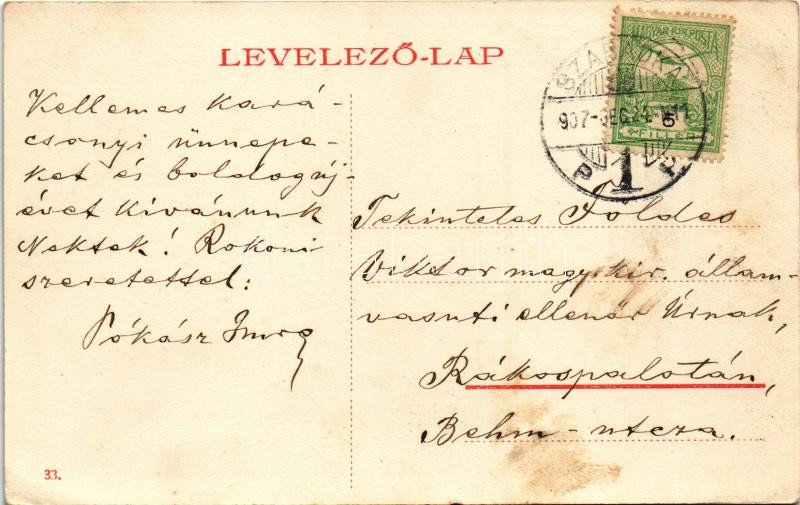 LEVELEZŐ-LAP
Kellemes kará-
csonyi ünnepe-
ket és boldog új-
évet kívánunk
Nektek! Rokoni
szeretettel:
Pókász Imre
33.
MAGYAR KIR. POSTA
5
FILLÉR
SZABADKA
907 DEC. 24
P 1
Tekintetes Földes
Viktor magy. kir. állam-
vasuti ellenőr Úrnak,
Rákospalotán,
Behm-utcza.